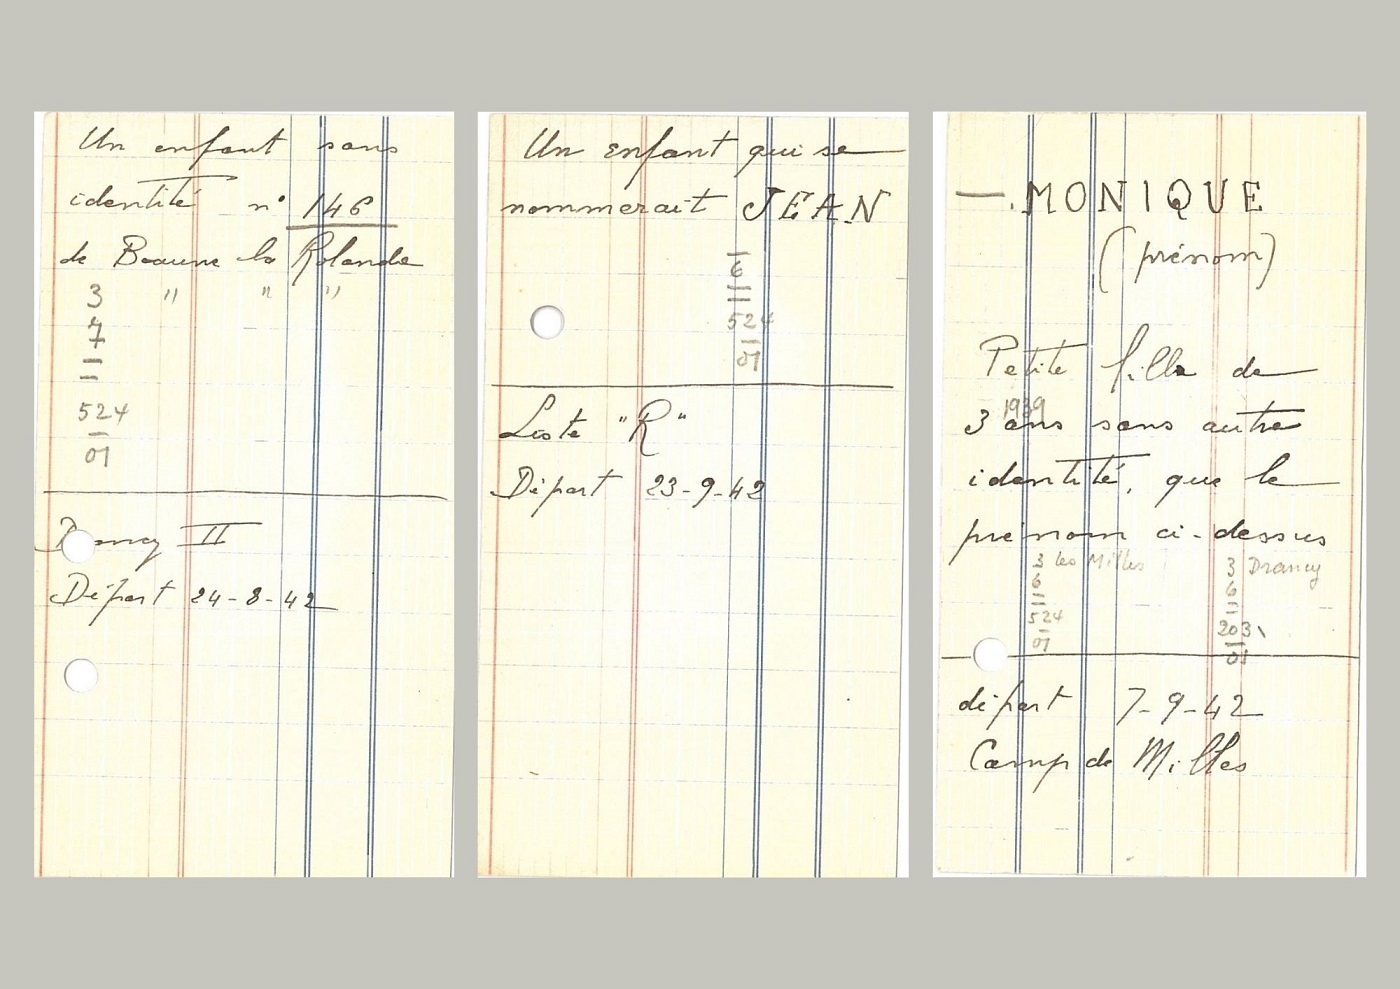 Un enfant sans
identité n° 146
de Beaune la Rolande
3 " " "
7
—
—
524
—
01
Drancy II
Départ 24-8-42
Un enfant qui se
nommerait JEAN
—
6
—
—
524
—
01
Liste "R"
Départ 23-9-42
— . MONIQUE
(prénom)
Petite fille de
1939
3 ans sans autre
identité, que le
prénom ci-dessus
3 Les Milles
6
—
—
524
—
01
3 Drancy
6
—
—
203
—
01
départ 7-9-42
Camp de Milles